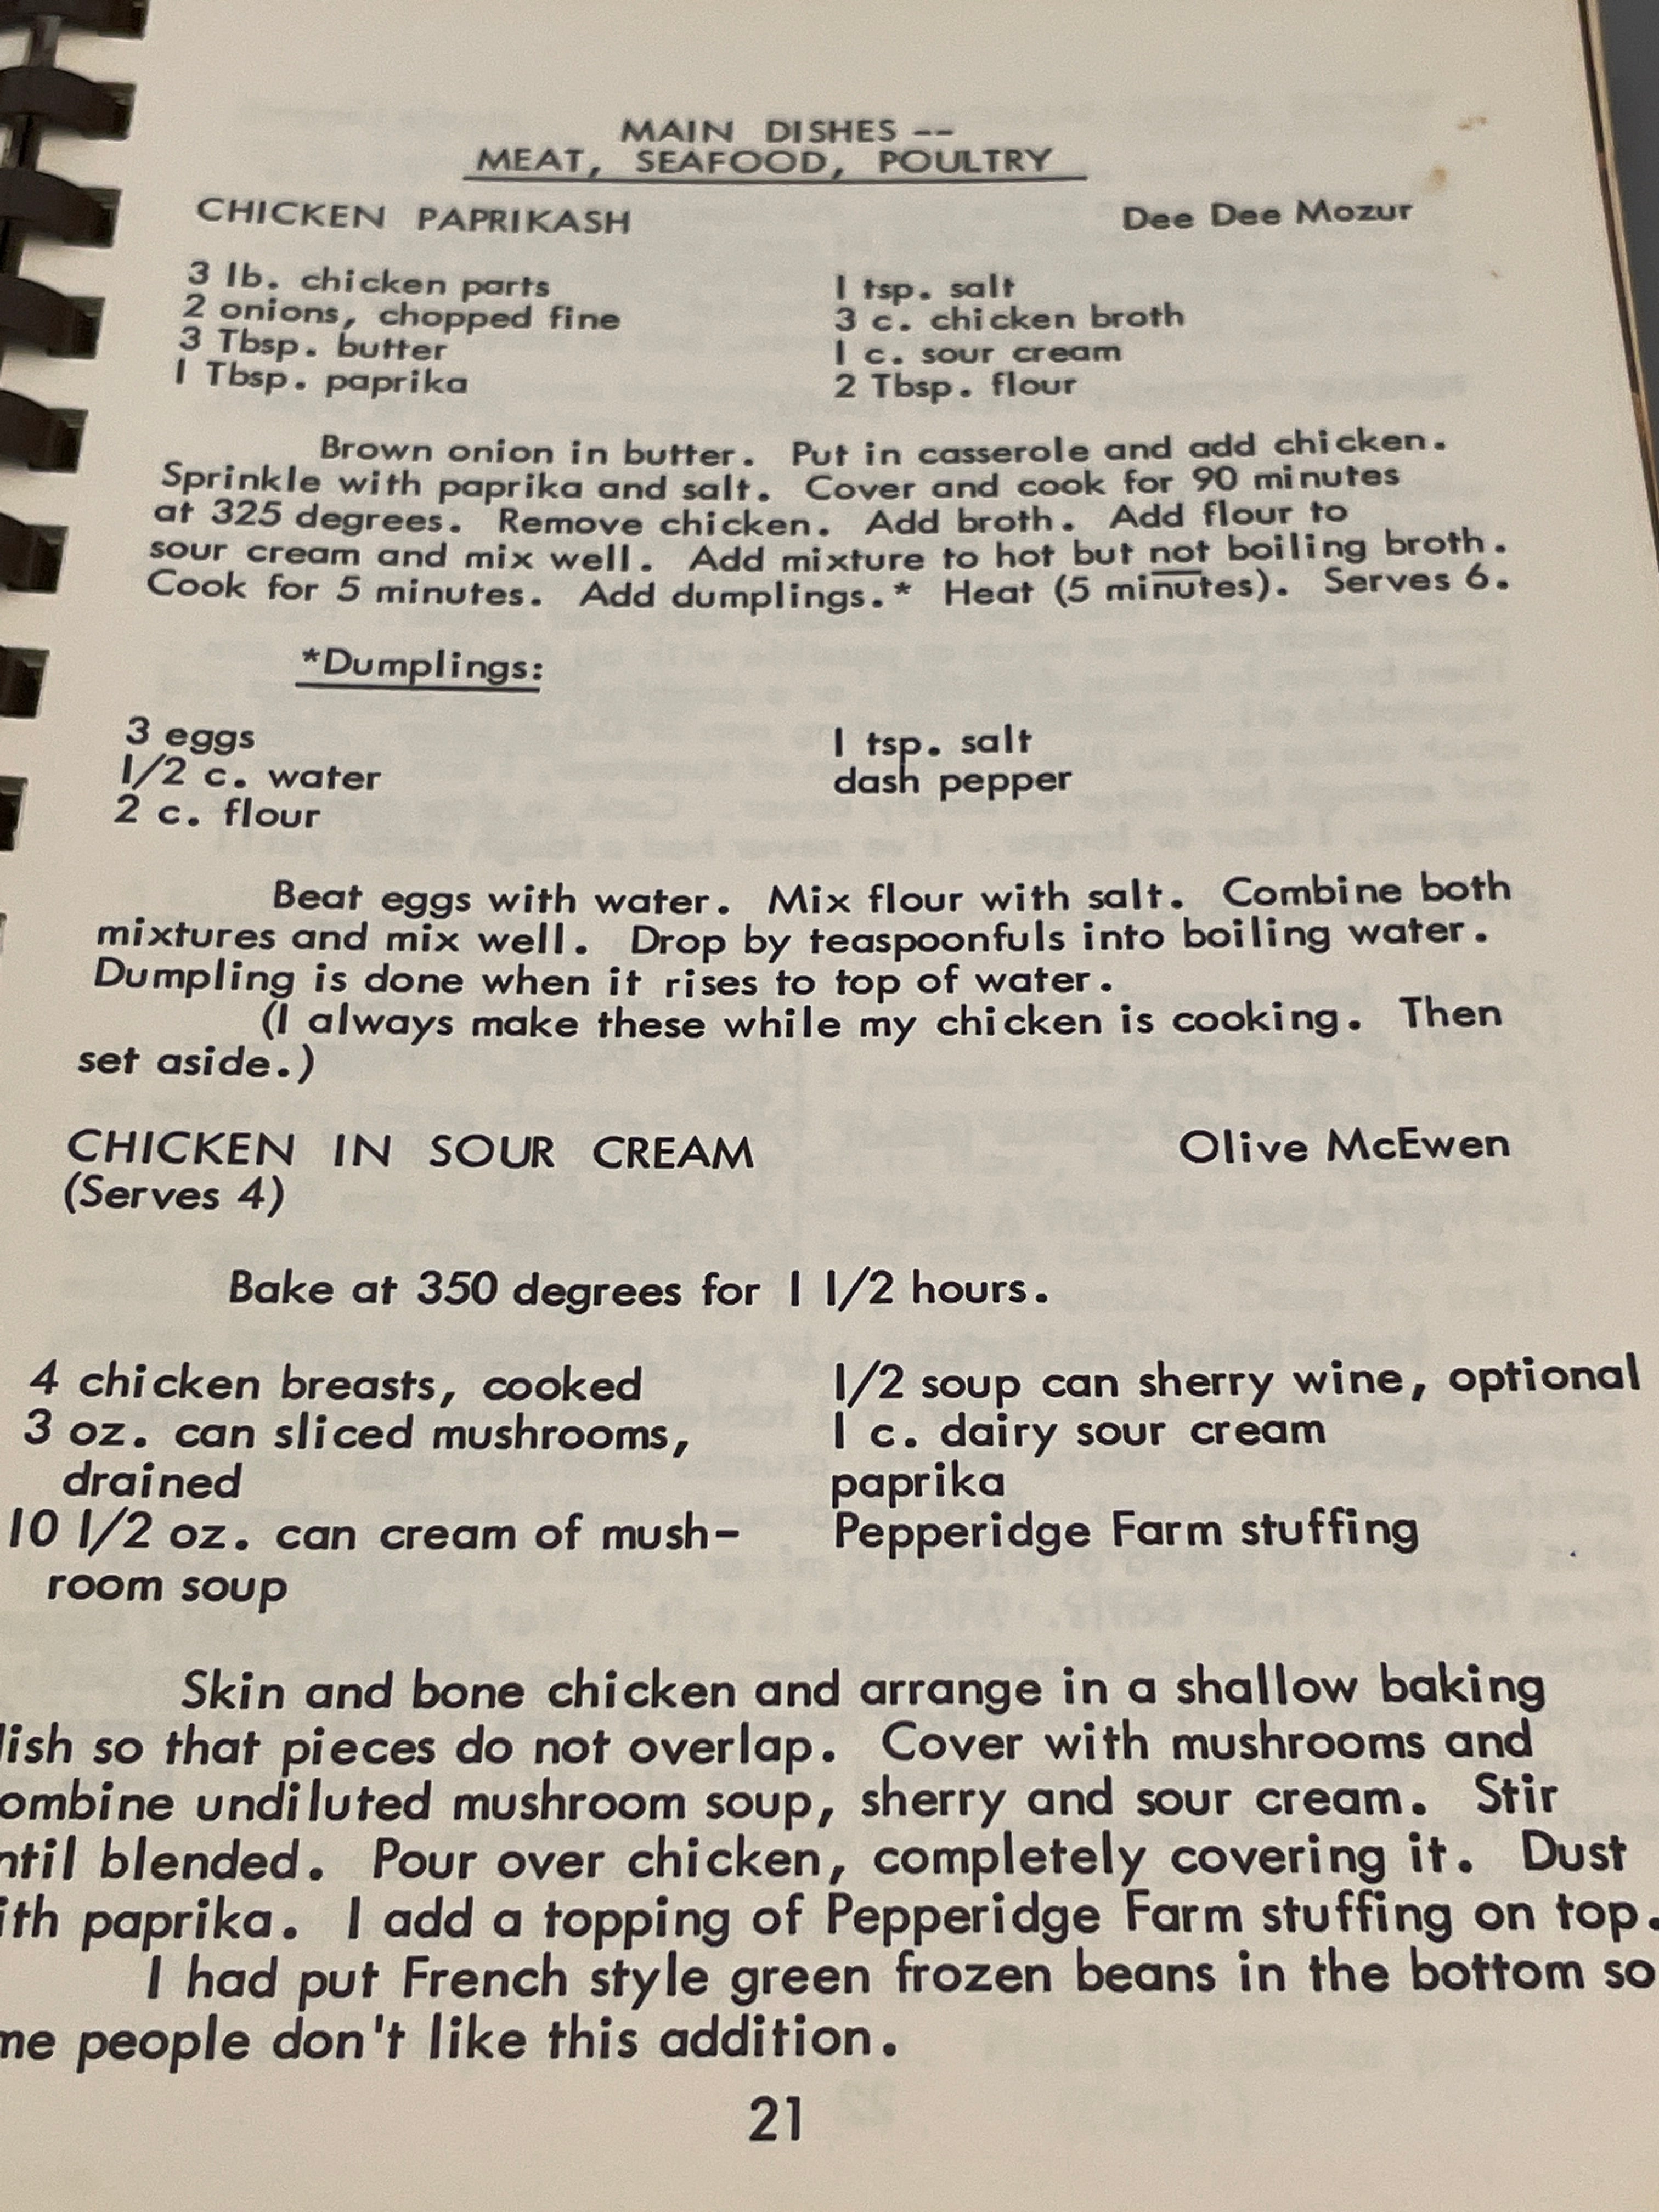 MAIN DISHES --
MEAT, SEAFOOD, POULTRY
CHICKEN PAPRIKASH Dee Dee Mozur
3 lb. chicken parts 1 tsp. salt
2 onions, chopped fine 3 c. chicken broth
3 Tbsp. butter 1 c. sour cream
1 Tbsp. paprika 2 Tbsp. flour
Brown onion in butter. Put in casserole and add chicken.
Sprinkle with paprika and salt. Cover and cook for 90 minutes
at 325 degrees. Remove chicken. Add broth. Add flour to
sour cream and mix well. Add mixture to hot but not boiling broth.
Cook for 5 minutes. Add dumplings.* Heat (5 minutes). Serves 6.
*Dumplings:
3 eggs 1 tsp. salt
1/2 c. water dash pepper
2 c. flour
Beat eggs with water. Mix flour with salt. Combine both
mixtures and mix well. Drop by teaspoonfuls into boiling water.
Dumpling is done when it rises to top of water.
(I always make these while my chicken is cooking. Then
set aside.)
CHICKEN IN SOUR CREAM Olive McEwen
(Serves 4)
Bake at 350 degrees for 1 1/2 hours.
4 chicken breasts, cooked 1/2 soup can sherry wine, optional
3 oz. can sliced mushrooms, 1 c. dairy sour cream
drained paprika
10 1/2 oz. can cream of mush- Pepperidge Farm stuffing
room soup
Skin and bone chicken and arrange in a shallow baking
ish so that pieces do not overlap. Cover with mushrooms and
ombine undiluted mushroom soup, sherry and sour cream. Stir
ntil blended. Pour over chicken, completely covering it. Dust
ith paprika. I add a topping of Pepperidge Farm stuffing on top.
I had put French style green frozen beans in the bottom so
me people don't like this addition.
21